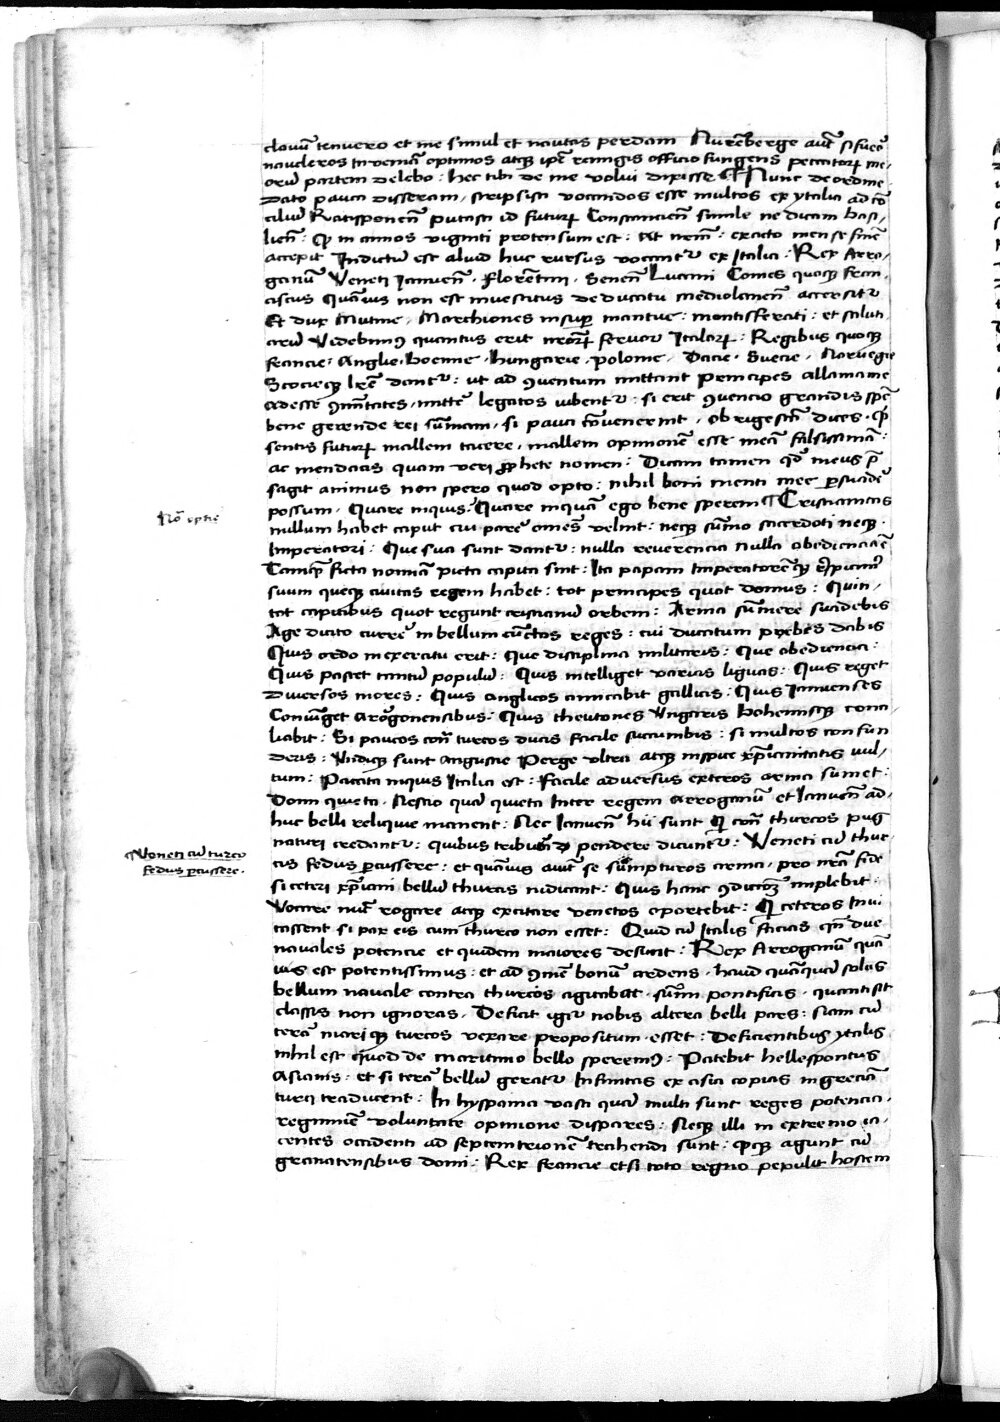 clavū tenuero et me simul et nautas perdam Nurēberge aūt si fuero
naucleros invenia optimos atqȝ ipē remigis officio fungens peccatoꝝ me-
oꝝ partem delebo : hec tibi de me volui dixisse ¶ Nunc de ordine
dato pauca disseram / scripsisti vocandos esse multos ex ytalia ad cō
ciliū Ratisponeñ putasti id futuꝝ Constancieñ simile ne dicam basi-
lieñ : qȝ in annos viginti protensum est : At neutꝝ : excuto mense finē
accepit Indictū est aliud huc rursus vocantr ex Italia : Rex Arro-
gonū Veneti Januēn · florētini · Senēn Lucani Comes quoqȝ fran
ciscus Quāvis non est investitus de ducatu mediolaneñ accersitr
Et dux Mutine / Marchiones insuꝑ mantue : montisferati : et saluti
arū Videbimꝰ quantus erit nr̄oꝝ fervor Italoꝝ : Regibus quoqȝ
francie · Anglie · boemie · hungarie · polonie / Dacie · Suecie · Norvegie
Scocieqȝ lrē dantr : ut ad ꝯventum mittant Principes allamanie
adesse ꝯmūitates / mittē legatos iubentr : si erit ꝯventio grandis spēs
bene gerende rei sūmam / si pauci cōvenerint / obrigescēt dices · Pre
sentis futuꝝ mallem tacere / mallem opinionē esse meā falsissimā :
ac mendacis quam veri ꝓphete nomen : Dicam tamen qd̄ meus p̄
sagit animus non spero quod opto : nihil boni menti mee ꝑsuadē
possum / Quare inquis : Quare inquā ego bene sperem ¶ Cristianitas
nullum habet caput cui parē omēs velint : neqȝ sūmo sacerdoti neqȝ
Imperatori : Que sua sunt dantr : nulla reverencia nulla obediencia ē
Tamqȝ ficta nomīa picta capita sint : Ita papam Imperatorēqȝ respicimꝰ
suum queqȝ civitas regem habet : tot principes quot domus : Quin
tot capitibus quot regunt cristianū orbem : Arma sūmere suadebis
Age dicito currē in bellum cūctos reges : cui ducatum prebes dabis
Quis ordo in exercitu erit : Que disciplina militaris : Que obediencia :
Quis pascet tantū populū : Quis intelliget varias ligwas : Quis reget
Diversos mores : Quis anglicos amicabit gallicis : Quis Januenses
Coniūget arogonensibus : Quis theutones Ungaris bohemisqȝ conci
liabit : Si paucos con̄ turcos ducis facile succumbis : si multos confun
deris : Undiqȝ sunt angustie Perge ultra atqȝ inspice xp̄ianitatis vul
tum : Paccata inquis Italia est : Facile adversus exteros arma sumet :
Domi quieta / Nescio quā quieta Inter regem arrogonū et Januēn ad
huc belli reliquie manent : Nec Januēn hii sunt Qui con̄ thurcos pug
naturi credantr : quibus tributū pendere dicuntr : Veneti cū thur
cis fedus ꝑcussere : et quāvis aiunt se sūmpturos arma / pro nr̄a fide
si ceteri xp̄iani bellū thurcis indicant : Quis hanc ꝯdicioꝫ implebit :
Vocare nūc rogare atqȝ excitare venetos oportebit : Qui ceteros Invi
tassent si pax eis cum thurco non esset : Quid cū Italis facias qn̄ due
navales potencie et quidem maiores desunt : Rex Arrogonū quā
vis est potentissimus : et ad ꝯmē bonū ardens / haud quāquā solus
bellum navale contra thurcos agitabat · sūmi pontificis / quanti sit
classis non ignoras / Deficit igr nobis altera belli pars : Nam cū
terā mari qȝ turcos vexare propositum esset : Deficientibus ytalis
nihil est quod de maritimo bello speremꝰ : Patebit hellespontus
Asianis : et si terā bellū geratr Infinitas ex asia copias in greciā
turci traducent : In hyspania vasti quā multi sunt reges potencia /
regimine voluntate opinione dispares : Neqȝ illi in extremo ia-
centes occidenti ad septemtrionē trahendi sunt : quoqȝ agunt cū
granatensibus domi : Rex francie etsi toto regno pepulit hostem
Veneti cū turco
fedus ꝑcussere ·